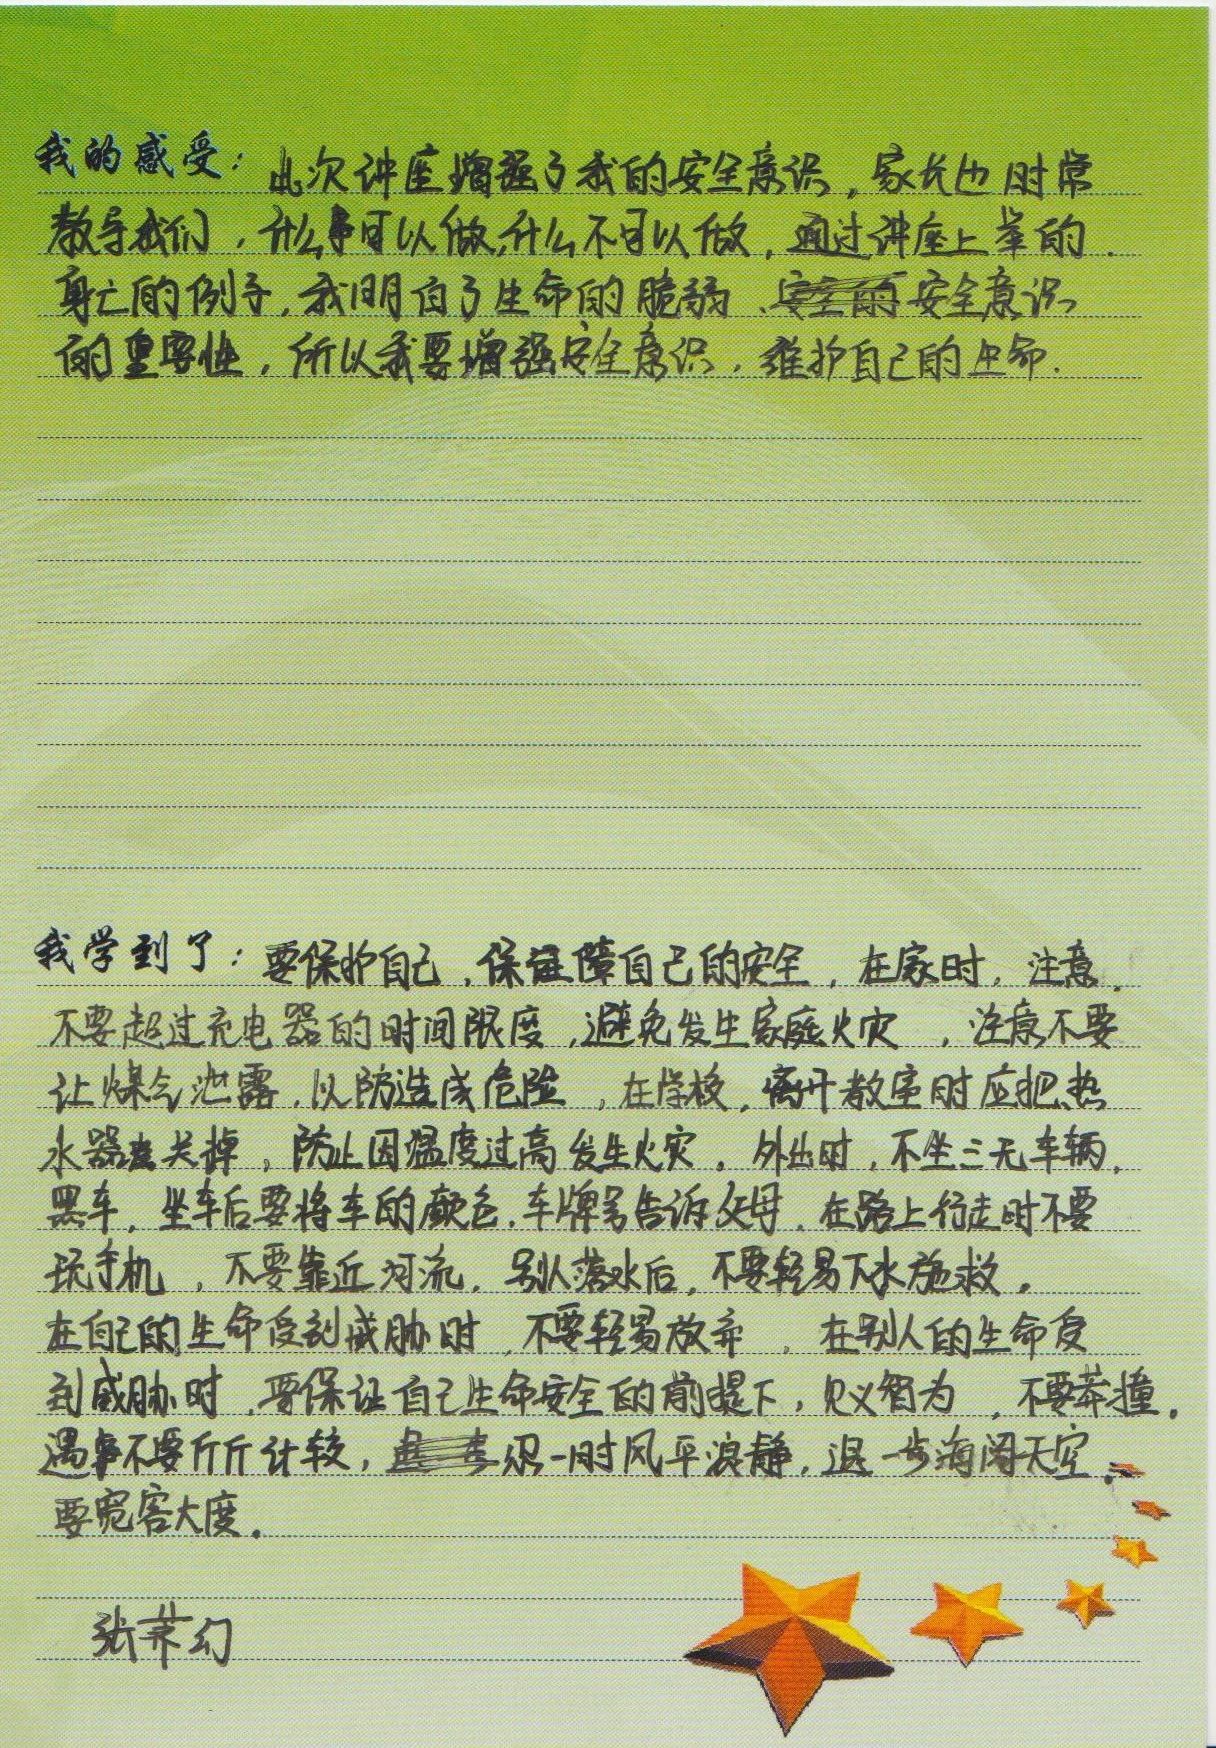 我的感受：此次讲座增强了我的安全意识，家长也时常
教导我们，什么事可以做，什么不可以做，通过讲座上举的
身亡的例子，我明白了生命的脆弱、安全意识
的重要性，所以我要增强安全意识，维护自己的生命.
我学到了：要保护自己，保障自己的安全，在家时，注意
不要超过充电器的时间限度，避免发生家庭火灾，注意不要
让煤气泄露，以防造成危险，在学校，离开教室时应把热
水器关掉，防止因温度过高发生火灾。外出时，不坐三无车辆，
黑车，坐车后要将车的颜色，车牌号告诉父母，在路上行走时不要
玩手机，不要靠近河流，别人落水后，不要轻易下水施救。
在自己的生命受到威胁时，不要轻易放弃，在别人的生命受
到威胁时，要保证自己生命安全的前提下，见义智为，不要莽撞。
遇事不要斤斤计较，忍一时风平浪静，退一步海阔天空
要宽容大度。
张 幻